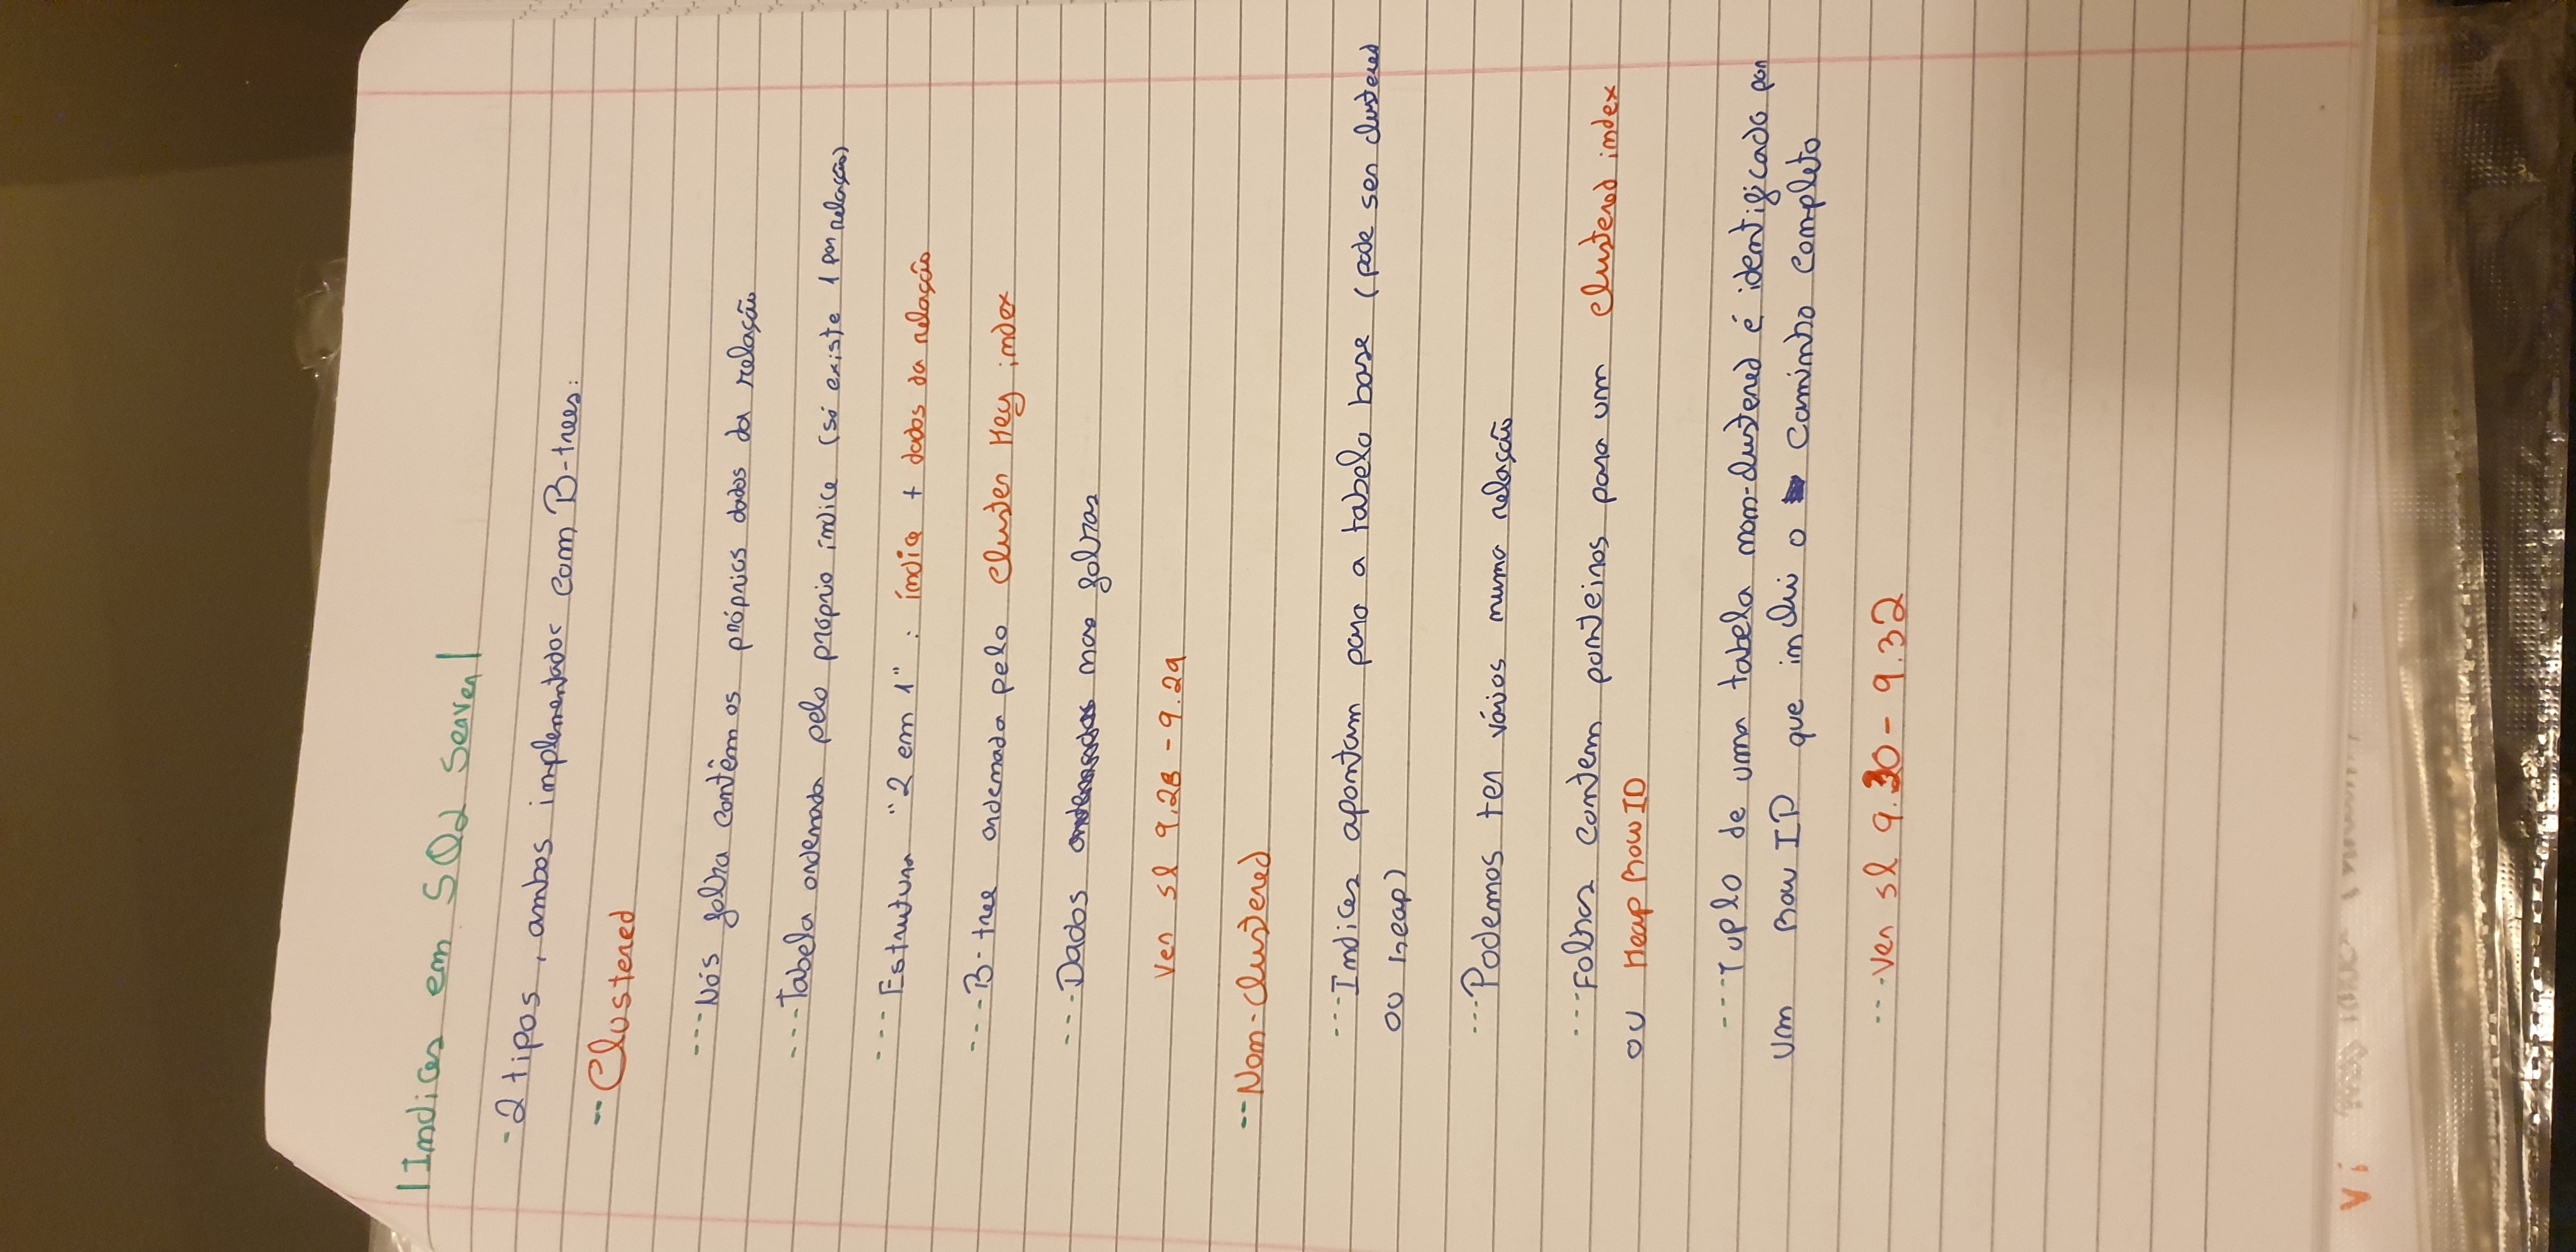 |Indices em SQL Server|
- 2 tipos, ambos implementados com B-trees:
-- Clustered
--- Nós folha contêm os próprios dados da relação
--- Tabela ordenada pelo próprio índice (só existe 1 por relação)
--- Estrutura "2 em 1" : índice + dados da relação
--- B-tree ordenada pelo Cluster Key index
--- Dados ordenados nas folhas
Ver sl 9.28 - 9.29
-- Non-Clustered
--- Indices apontam para a tabela base (pode ser clustered
ou heap)
--- Podemos ter vários numa relação
--- Folhas contem ponteiros para um Clustered index
ou Heap Row ID
--- Tuplo de uma tabela non-clustered é identificado por
um Row ID que inclui o caminho completo
--- Ver sl 9.30 - 9.32